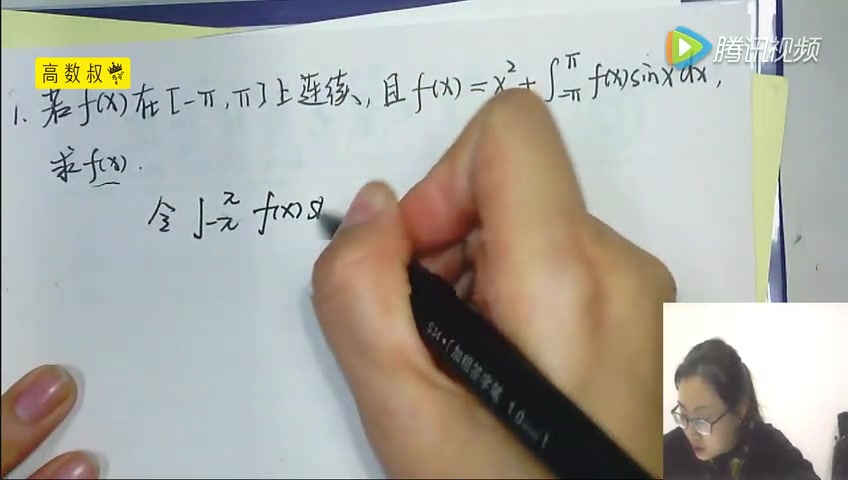 高数叔
腾讯视频
1. 若 f(x) 在 [-π, π] 上连续, 且 f(x) = x² + ∫_{-π}^{π} f(x) sin x dx,
求 f(x).
令 ∫_{-π}^{π} f(x) s
加粗签字笔 1.0mm